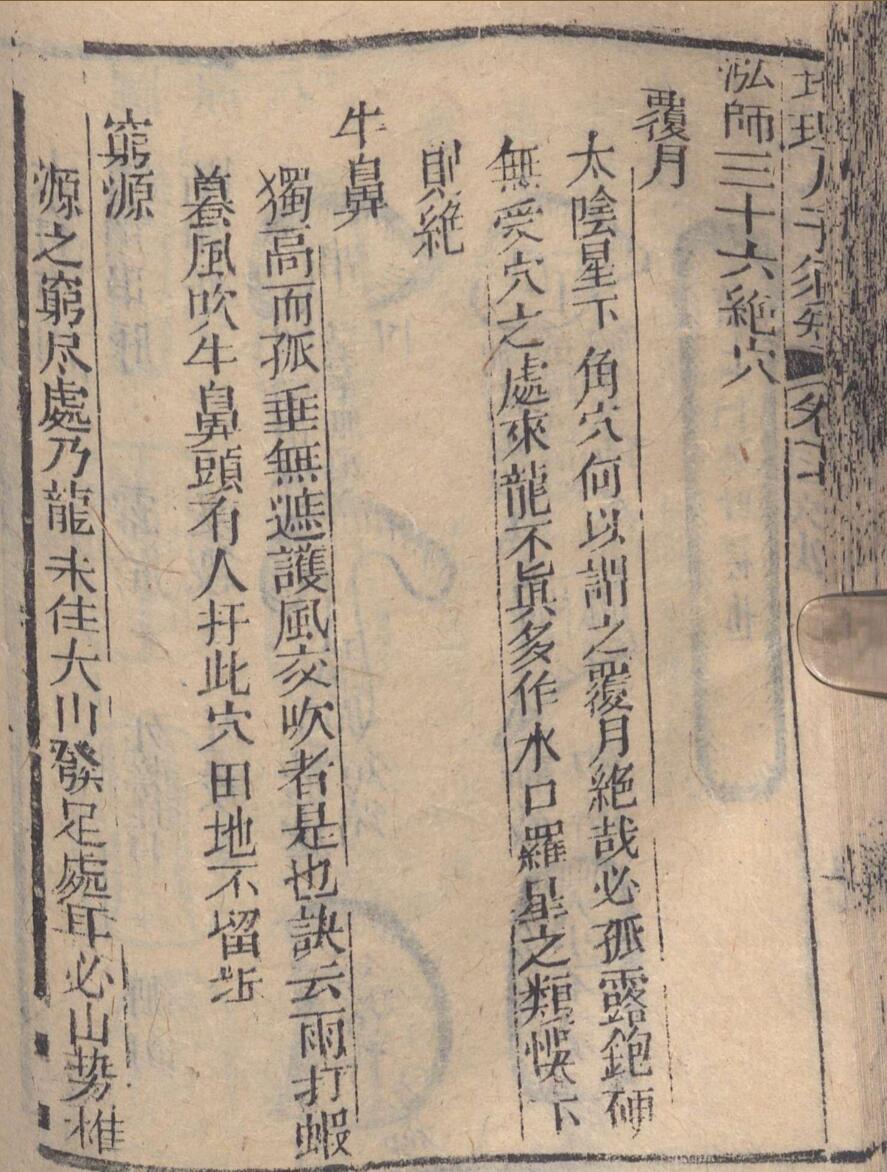 地理人子須知
泓師三十六絕穴
覆月
太陰星下角穴何以謂之覆月絕哉必孤露飽硬
無受穴之處來龍不眞多作水口羅星之類悞下
則絕
牛鼻
獨高而孤垂無遮護風交吹者是也訣云雨打蝦
蟇風吹牛鼻頭有人扦此穴田地不留坵
窮源
源之窮尽處乃龍未住大山發足處耳必山势椎